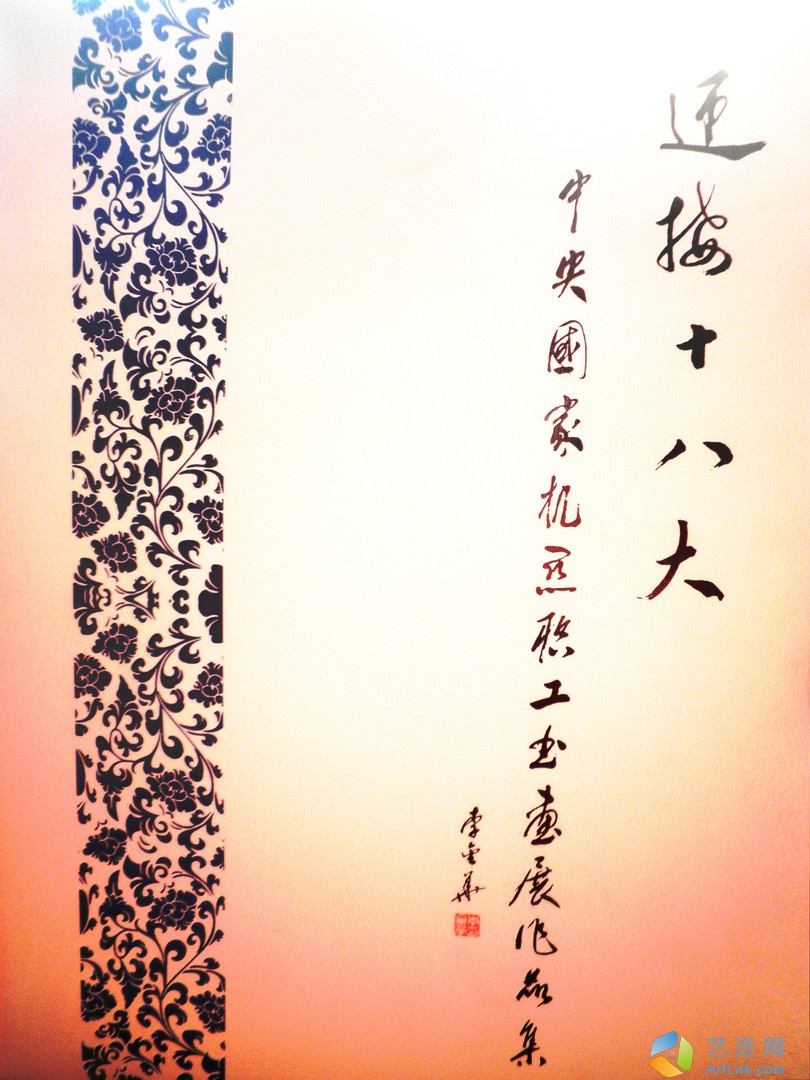 迎接十八大
中央國家机关职工书画展作品集
李金華
艺连网
ArtLnk.com